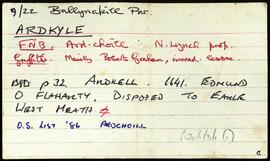 9/22 Ballynakill Par.
ARDKYLE
FNB. Ard-choill : N. Lynch prop.
Griffiths. Mainly Robert Graham, immed. lessor.
BSD p32 ARDKELL. 1641. EDMUND
O FLAHARTY. DISPOSED TO EARLE
WEST MEATH
O.S. LIST '86 ARDCHOILL
C